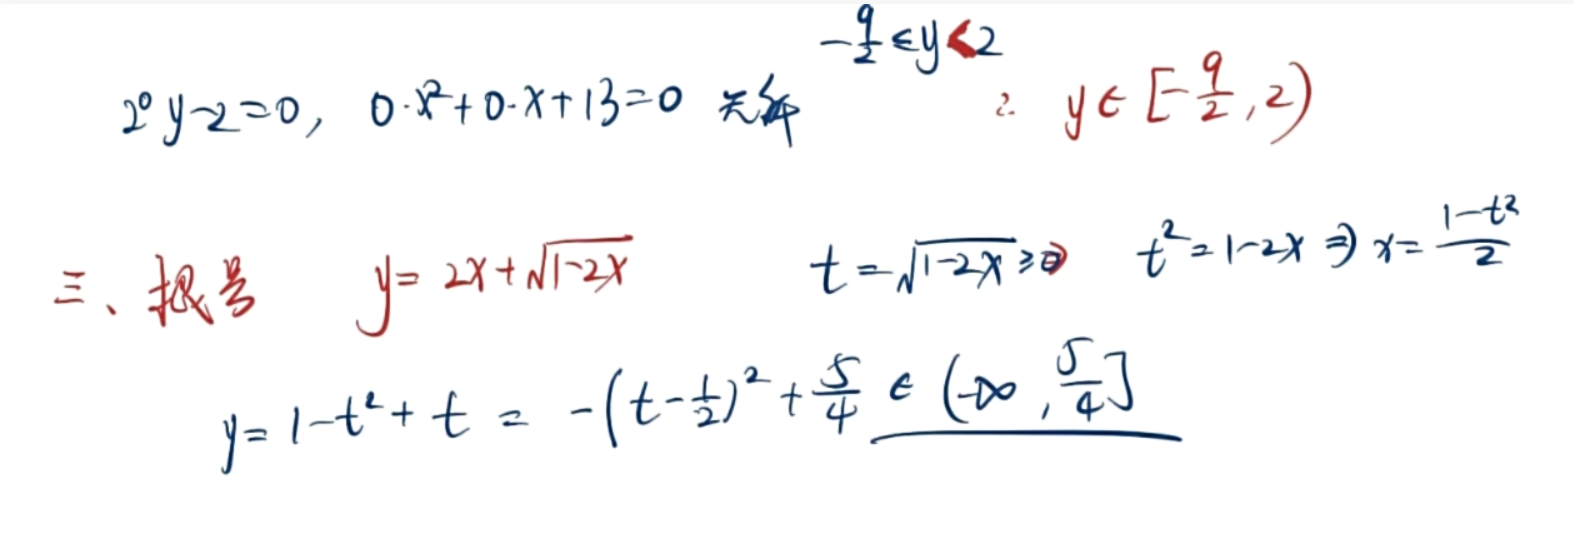 -9/2 ≤ y < 2
2° y-2=0, 0·x²+0·x+13=0 无解 ∴ y∈[-9/2,2)
三、根号 y=2x+√(1-2x) t=√(1-2x)≥0 t²=1-2x⇒x=(1-t²)/2
y=1-t²+t = -(t-1/2)²+5/4 ∈ (-∞,5/4]